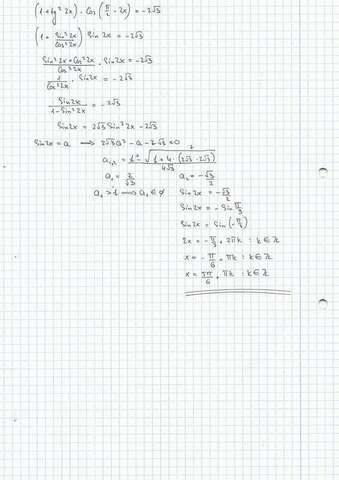 (1 + tg² 2x) · cos(π/2 - 2x) = -2√3
(1 + sin² 2x / cos² 2x) sin 2x = -2√3
(sin² 2x + cos² 2x) / cos² 2x · sin 2x = -2√3
1 / cos² 2x · sin 2x = -2√3
sin 2x / (1 - sin² 2x) = -2√3
sin 2x = 2√3 sin² 2x - 2√3
sin 2x = a ⟹ 2√3 a² - a - 2√3 = 0
a₁,₂ =
a₁ = 2/√3 a₂ = -√3/2
a₁ > 1 ⟹ a₁ ∈ ∅ sin 2x = -√3/2
sin 2x = - sin π/3
sin 2x = sin (-π/3)
2x = -π/3 + 2πk : k ∈ ℤ
x = -π/6 + πk : k ∈ ℤ
x = 5π/6 + πk : k ∈ ℤ